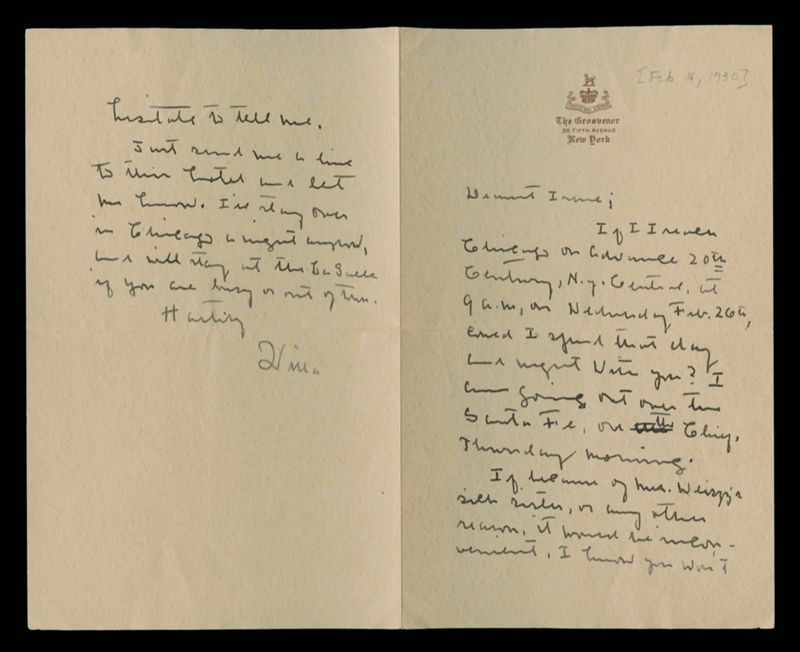 [Feb 16, 1930]
The Grosvenor
35 Fifth Avenue
New York
Dearest Irene;
If I I reach
Chicago on Advance 20th
Century, N.Y. Central, at
9 a.m., on Wednesday Feb. 26th,
could I spend that day
and night with you? I
am going out over the
Santa Fe, on the Chief,
Thursday morning.
If, because of Mr. Weisz's
sick sister, or any other
reason, it would be incon-
venient, I know you won't
hesitate to tell me.
Just send me a line
to this hotel and let
me know. I'll stay over
in Chicago a night anyhow,
and will stay at the LaSalle
if you are busy or out of town.
Hastily
Willa